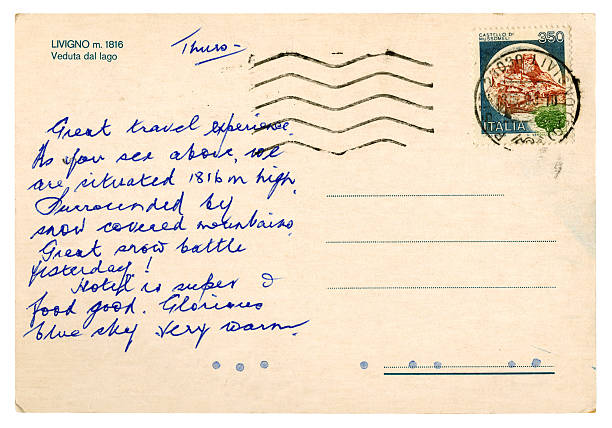 LIVIGNO m. 1816
Veduta dal lago
Thurs-
CASTELLO DI
MUSSOMELI
350
ITALIA
Great travel experience.
As you see above, we
are situated 1816 m high
Surrounded by
snow covered mountains.
Great snow battle
yesterday!
Hotel is super &
food good. Glorious
blue sky very warm.